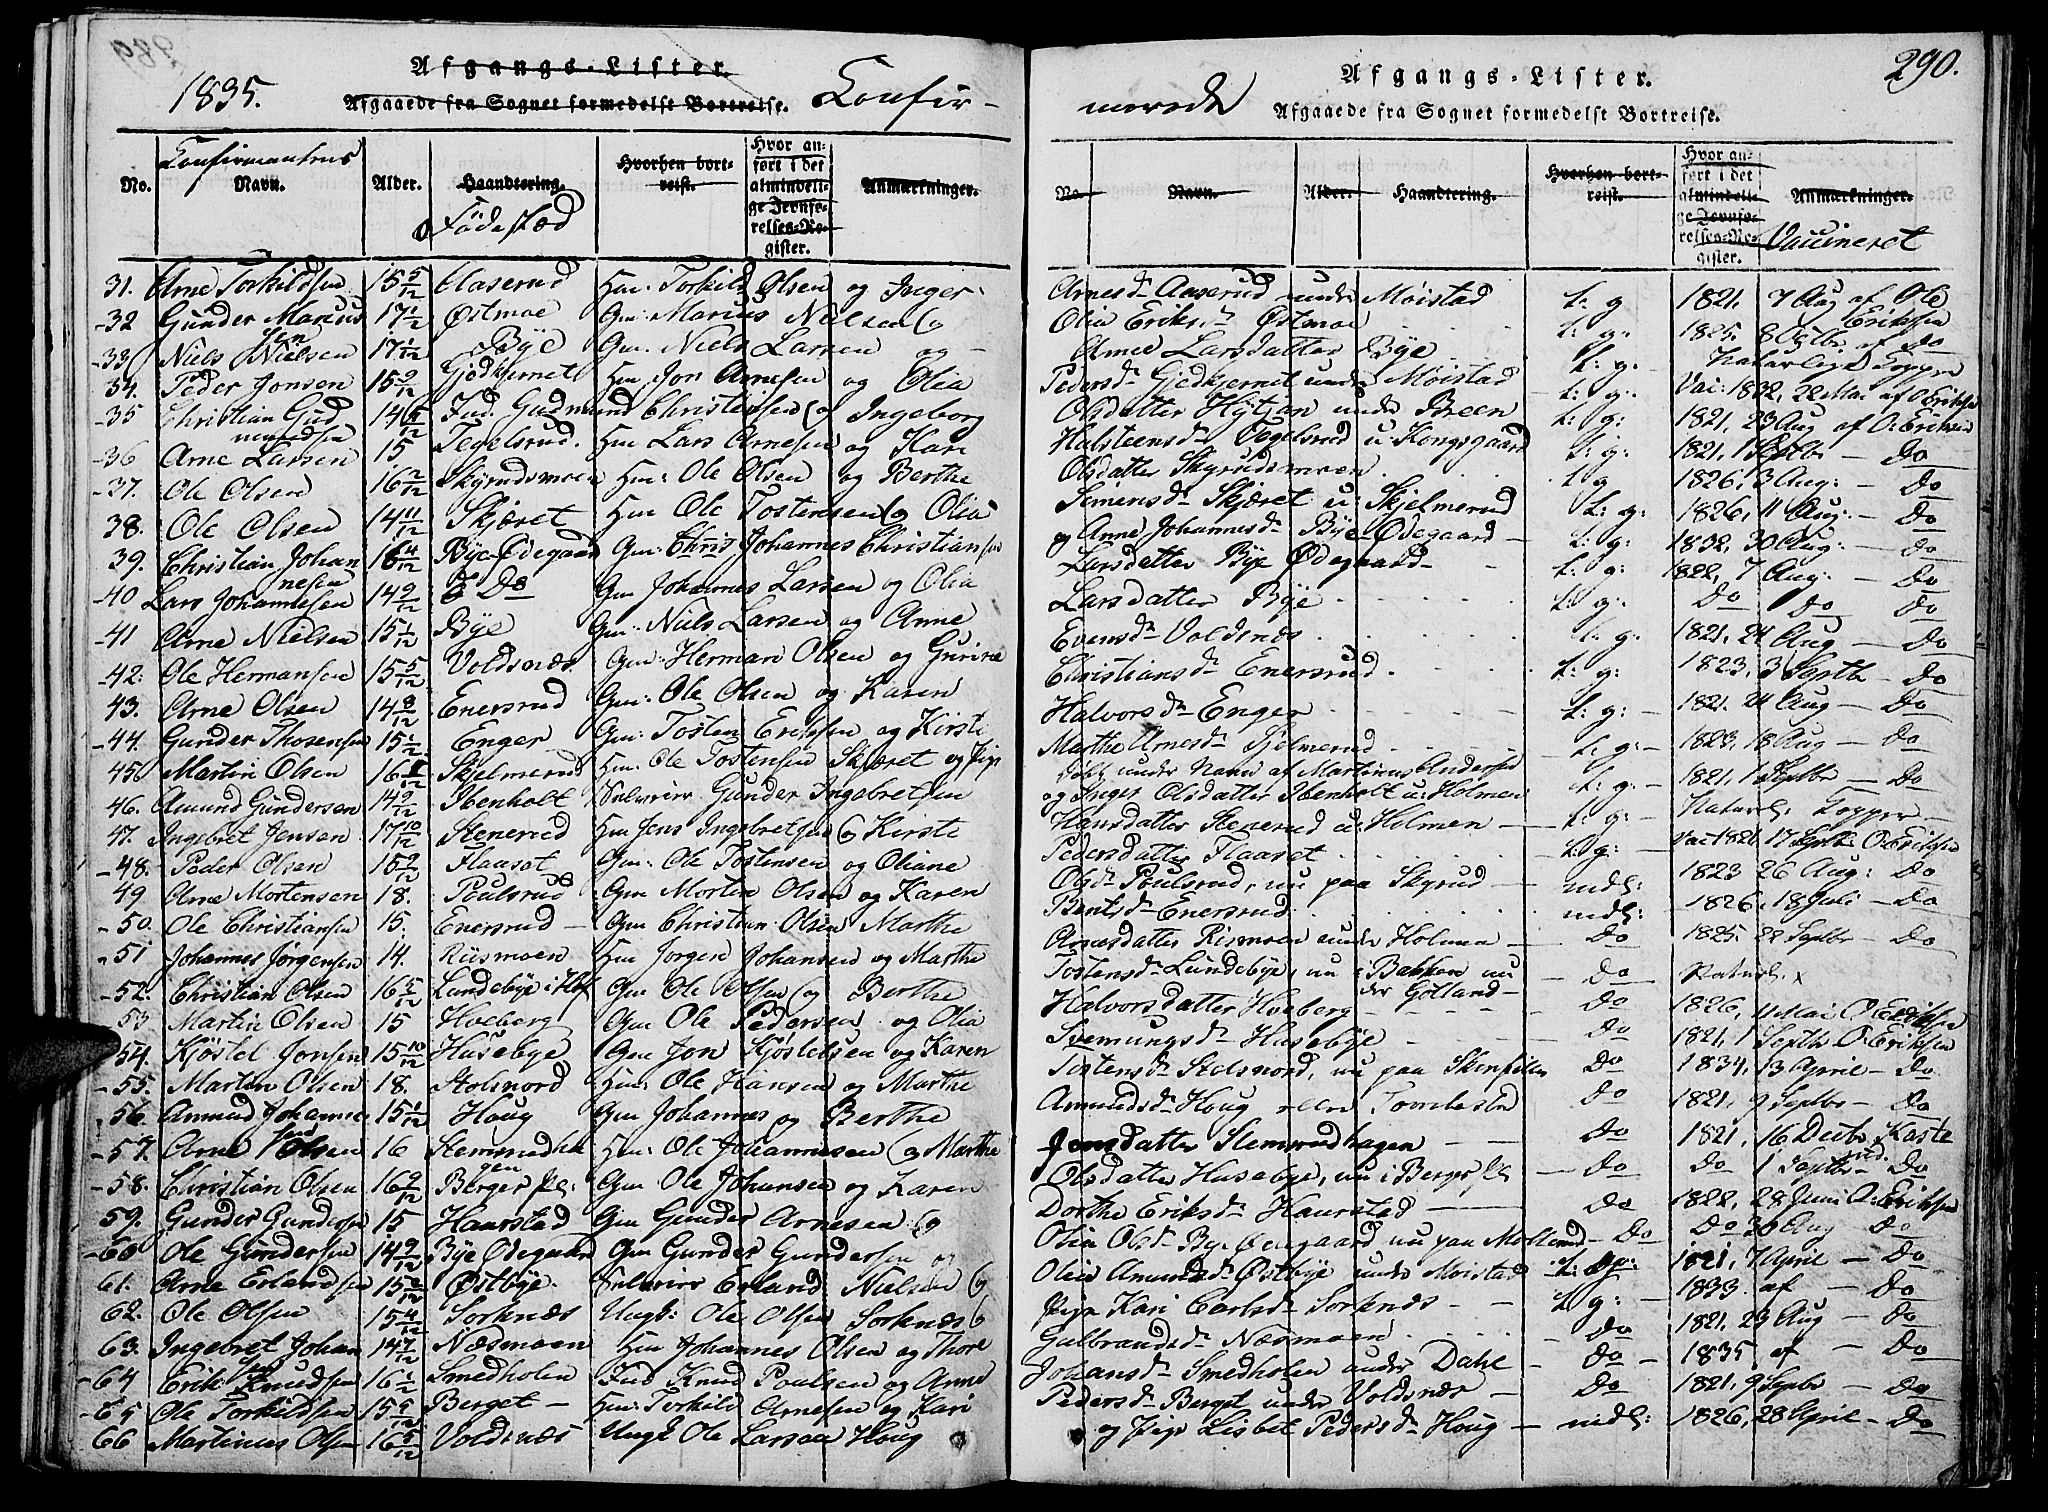 289
1835.
Afgangs-Lister.
Afgaaede fra Sognet formedelst Bortreise.
Confir-
No.
Confirmantens
Navn.
Alder.
Haandtering.
Födested
Hvorhen bort-
reist.
Hvor an-
ført i det
almindeli-
ge Jevnfø-
relses-Re-
gister.
Anmærkninger.
31. Arne Torkildsen 15 5/12 Aaserud Hm: Torkild Olsen og Inger
32 Gunder Mariussen 17 1/12 Østmoe Gm: Marius Nielsen og
33 Niels Nielsen 17 1/12 Bye Gm. Niels Larsen og
34. Peder Jonsen 15 9/12 Gjödkjernet Hm. Jon Arnesen og Olia
35 Christian Gudmundsen Ind. Gudmund Christensen og Ingeborg
36 Arne Larsen 15 Tegelsrud. Hm Lars Arnesen og Kari
37. Ole Olsen 16 2/12 Skyrudsmoen Hm: Ole Olsen og Berthe
38. Ole Olsen 14 11/12 Skjæret Hm Ole Tostensen og Olia
39. Christian Johannesen 16 4/12 Bye Ødegaard Gm: Johannes Christiansen
40 Lars Johannesen 14 9/12 Do Gm Johannes Larsen og Olia
41 Arne Nielsen 15 1/12 Bye Gm: Niels Larsen og Anne
42. Ole Hermansen 15 5/12 Voldsnæs Gm: Herman Olsen og Gurine
43. Arne Olsen 14 8/12 Enersrud Gm: Ole Olsen og Karen
44. Gunder Thosensen 15 1/12 Enger Gm: Tosten Eriksen og Kirsti
45. Martin Olsen 16 Skjelmerud Hm: Ole Tostensen Skjæret og Pige
46. Amund Gundersen 14 9/12 Ibenholt Selveier Gunder Ingebretsen
47. Ingebret Jensen 17 10/12 Stenerud Hm Jens Ingebretsen og Kirsti
48. Peder Olsen 15 9/12 Flaaset Gm: Ole Tostensen og Oliane
49 Arne Mortensen 18. Poulsrud Gm Morten Olsen og Karen
50. Ole Christiansen 15. Enersrud Gm Christian Olsen Marthe
51 Johannes Jörgensen 14. Riismoen Hm Jörgen Johansen og Marthe
52. Christian Olsen 16 5/12 Lundebye i Hof Gm Ole Olsen og Berthe
53 Martin Olsen 15 Hveberg Gm Ole Pedersen og Olia
54. Kjöstel Jonsen 15 10/12 Husebye Gm Jon Kjöstelsen og Karen
55. Martin Olsen 18. Stolsnord Hm: Ole Hansen og Marthe
56. Amund Johannesen 15 1/12 Houg Gm Johannes og Berthe
57. Arne Olsen 16 Stemsrudhagen Hm: Ole Johannesen og Marthe
58. Christian Olsen 16 2/12 Berger Gm Ole Johansen og Karen
59. Gunder Gundersen 15 Haarstad Gm Gunder Arnesen og
60 Ole Gundersen 14 9/12 Bye Ødegaard Gm Gunder Gundersen og
61. Arne Erlandsen 15 2/12 Østbye. Selveier Erland Nielsen og
62. Ole Olsen 15 4/12 Sorknæs Ungk: Ole Olsen Sorknæs og
63. Ingebret Johansen 14 7/12 Næsmoen Hm Johannes Olsen og Thore
64 Erik Knudsen 16 1/12 Smedholen Ind Knud Poulsen og Anne
65 Ole Torkildsen 15 5/12 Berget Hm: Torkild Arnesen og Kari
66 Martinus Olsen 16 5/12 Voldsnæs Ungk Ole Larsen Houg
290.
merede
Afgangs-Lister.
Afgaaede fra Sognet formedelst Bortreise.
No.
Navn.
Alder.
Haandtering.
Hvorhen bort-
reist.
Hvor an-
ført i det
almindeli-
ge Jevnfø-
relses-Re-
gister.
Anmærkninger.
Vaccineret
Arnesd. Aaserud under Moistad t: g 1821. 7 Aug af Ole Eriksen
Olia Eriksd. Østmoe t: g: 1825. 8 Octbr af Do
Arnee Larsdatter Bye t: g: Naturlige Kopper
Pedersd. Gjedkjernet under Moistad t: g: Vac: 1832, 22 Mai af O Eriksen
Olsdatter Hytjan under Breen t: g: 1821, 23 Aug af O: Eriksen
Halsteensd. Tegelsrud u Kongsgaard t: g: 1821, 1 Septbr Do
Olsdatter Skyrudsmoen t g 1826, 3 Aug: Do
Simensd. Skjæret u: Skjelmerud t: g: 1826, 11 Aug: Do
og Anne Johannesd. Bye Ødegaard t: g: 1832, 30 Aug: Do
Larsdatter Bye Ødegaard t: g: 1822, 7 Aug: Do
Larsdatter Bye t: g: Do Do Do
Evensd. Voldsnæs t: g: 1821, 24 Aug Do
Christiansd. Enersrud t: g: 1823, 3 Septbr Do
Halvorsd. Enger t: g: 1821. 24 Aug Do
Marthe Arnesd. Skjelmerud t: g: 1823, 18 Aug Do
döbt under Navn af Martinus Andersen t: g: 1821, 1 Septbr Do
og Inger Olsdatter Ibenholt u: Holmen t: g: Naturl: Kopper
Hansdatter Stenerud u: Holmen t: g: Vac 1821, 17 Septbr O: Eriksen
Pedersdatter Flaaset t: g: 1823 26 Aug: Do
Olsd. Poulsrud, nu paa Skyrud mdl: 1826, 18 Juli Do
Berntsd. Enersrud mdl: 1825. 22 Septbr Do
Arnesdatter Rismoen under Holmen Do Naturl.
Tostensd. Lundebye, nu i Bakken under Gölland Do
Halvorsdatter Hveberg Do 1826, 4 Mai O Eriksen
Svemungsd. Husebye Do 1821, 1 Septbr O: Eriksen
Tostensd. Stolsnord, nu paa Do 1834, 13 April Do
Amundsd. Houg Do 1821, 9 Septbr Do
Jensdatter Stemsrudhagen Do 1821, 16 Decbr Kaste
Olsdatter Husebye, nu i Berger Do Do 1 Septbr Do
Dorthe Eriksd. Haarstad Do 1822, 28 Juni O: Eriksen
Olia Olsd. Bye Ødegaard nu paa Mellerud Do Do 30 Aug Do
Olia Amundsd. Østbye under Moistad t: g: 1821, 7 April Do
Pige Kari Carlsd. Sorknæs t g: 1833. af Do
Gulbrandsd. Næsmoen Do 1821, 23 Aug Do
Johansd. Smedholen under Dahl Do 1835, af Do
Pedersd. Berget under Voldsnæs Do 1821, 9 Septbr Do
og Pige Lisbet Pedersd. Houg mdl: 1826, 28 April Do